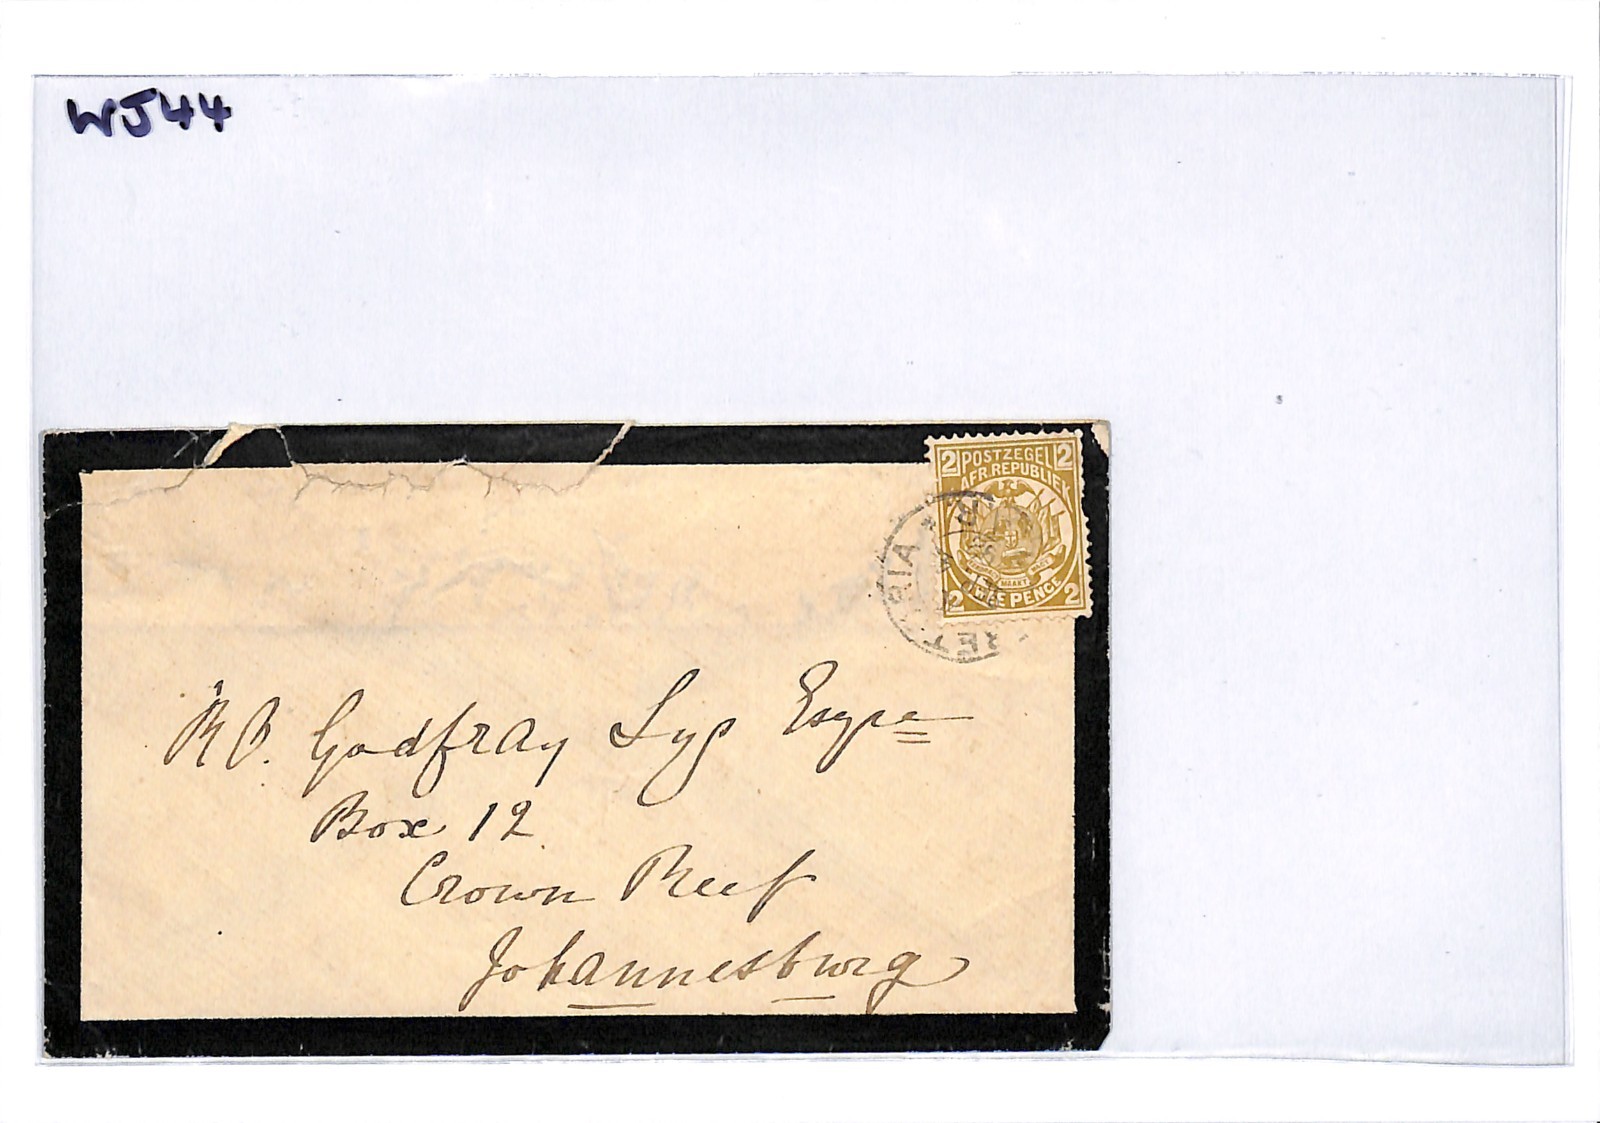 WJ44
2 POSTZEGEL 2
AFR. REPUBLIEK
EENDRAGT MAAKT MAGT
2 PENCE 2
R B. Godfray Lys Esqre
Box 12
Crown Reef
Johannesburg